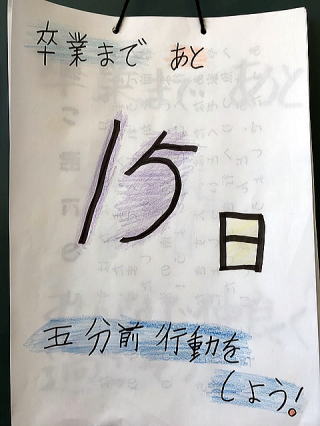 卒業まで あと
15日
五分前 行動を
しよう!